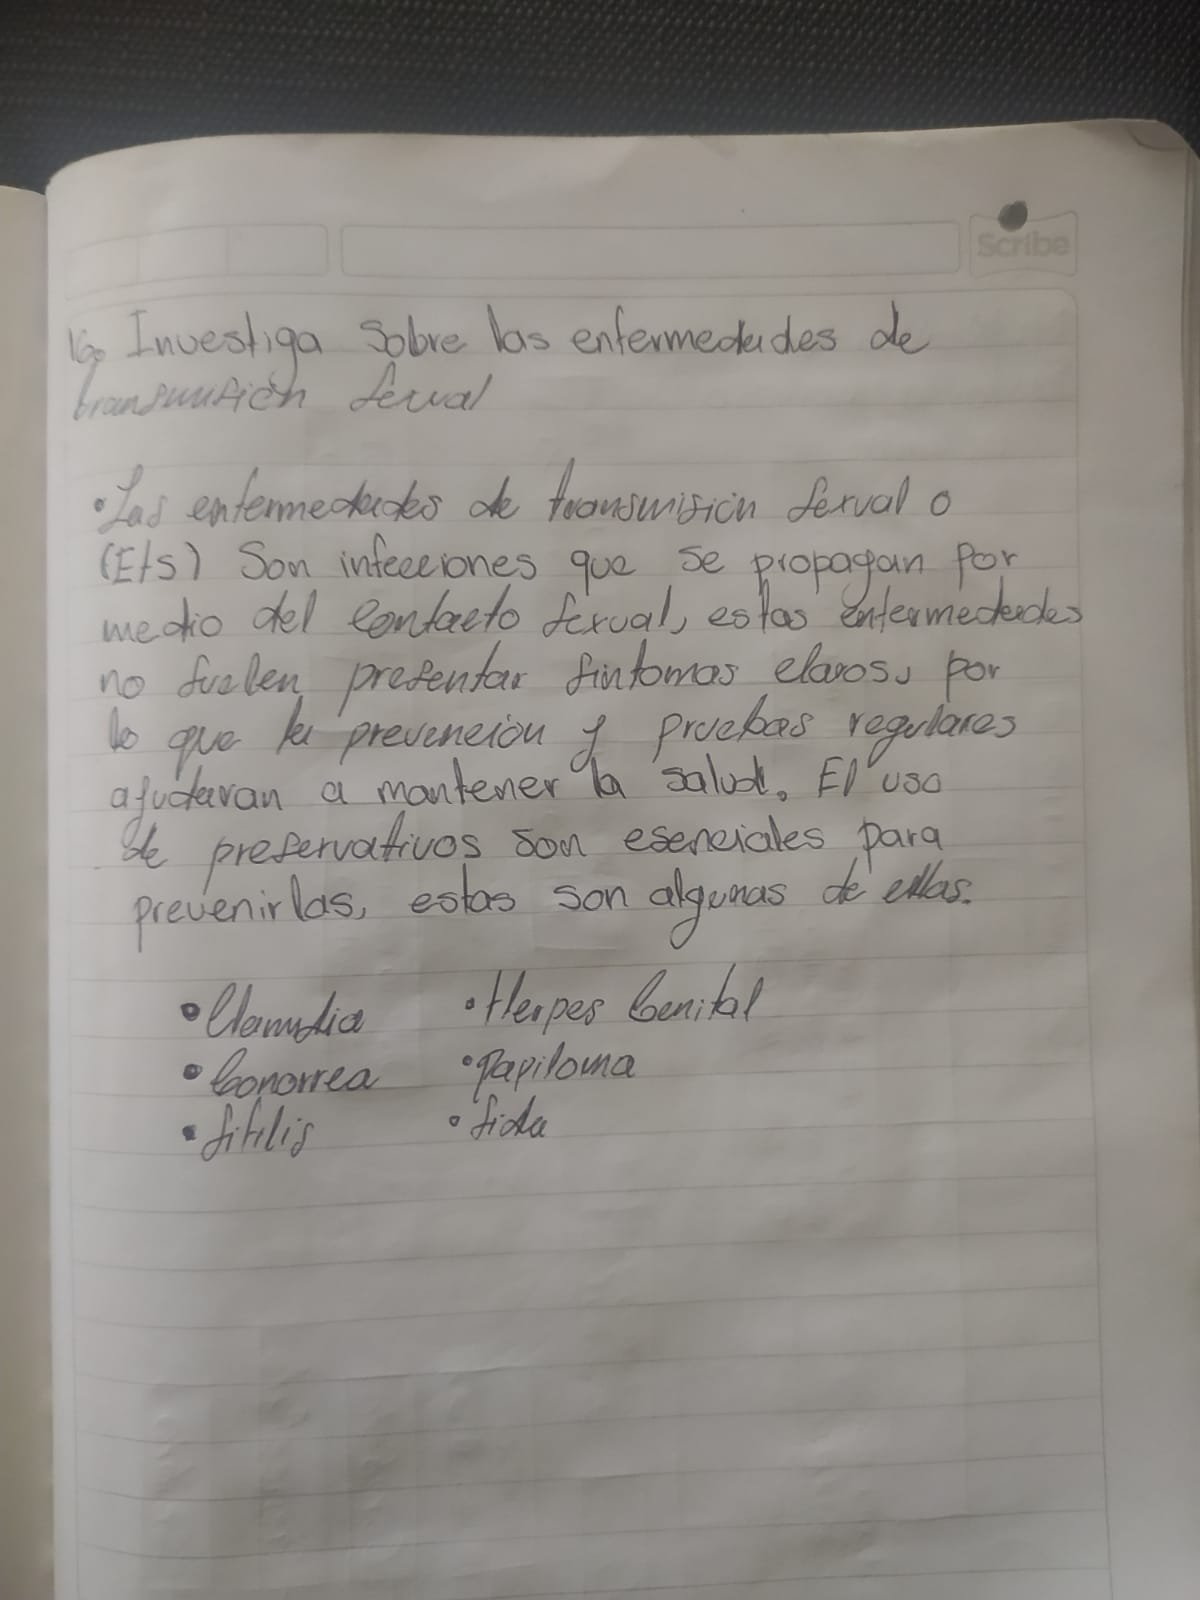 Scribe
16. Investiga Sobre las enfermedades de
transmisión sexual
•Las enfermedades de transmisión sexual o
(Ets) Son infecciones que se propagan por
medio del contacto sexual, estas enfermedades
no suelen presentar síntomas claros, por
lo que la prevención y pruebas regulares
ayudaran a mantener la salud. El uso
de preservativos son esenciales para
prevenirlas, estas son algunas de ellas.
•Clamidia •Herpes Genital
•Gonorrea •Papiloma
•Sífilis •Sida